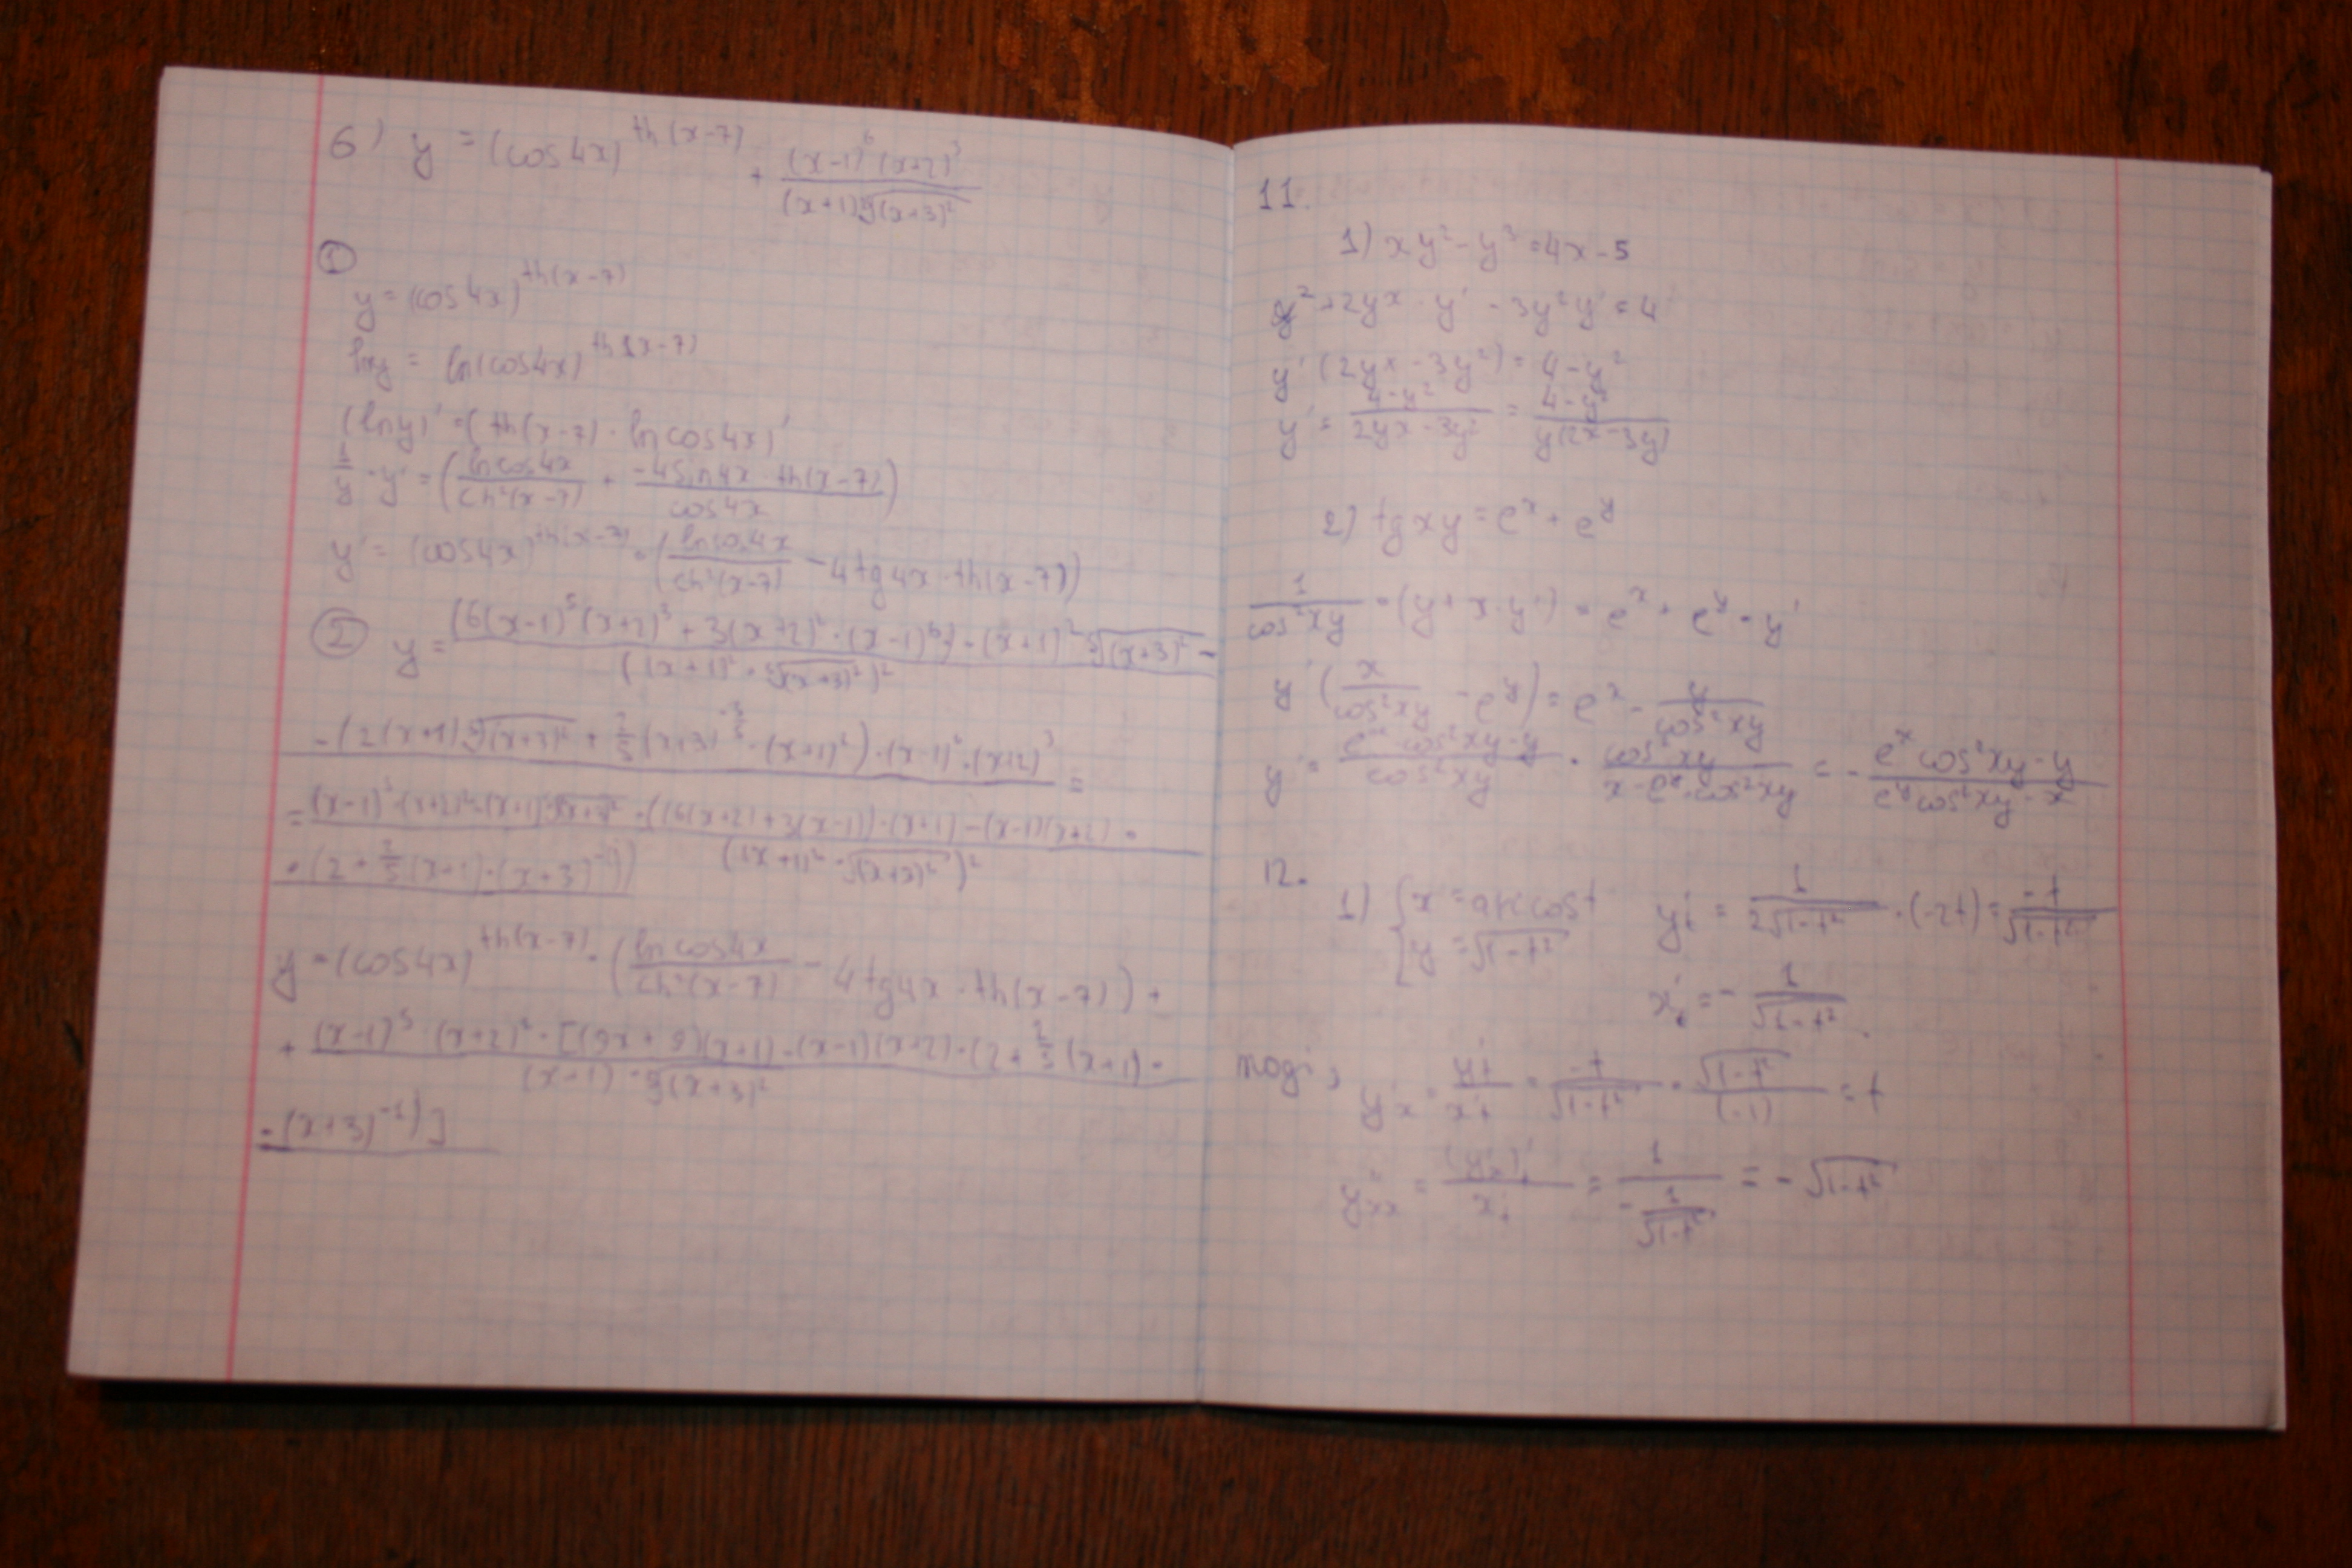 6) y = (cos4x)^{th(x-7)} + \frac{(x-1)^6 (x+2)^3}{(x+1)\sqrt[5]{(x+3)^2}}
①
y = (cos4x)^{th(x-7)}
lny = ln(cos4x)^{th(x-7)}
(lny)' = (th(x-7) · ln cos4x)'
\frac{1}{y} · y' = (\frac{lncos4x}{ch²(x-7)} + \frac{-4sin4x · th(x-7)}{cos4x})
y' = (cos4x)^{th(x-7)} · (\frac{lncos4x}{ch²(x-7)} - 4tg4x · th(x-7))
② y = \frac{(6(x-1)^5 (x+2)^3 + 3(x+2)² · (x-1)^6) · (x+1)² \sqrt[5]{(x+3)²} -}{((x+1)² · \sqrt[5]{(x+3)²})²}
-(2(x+1)\sqrt[5]{(x+3)²} + \frac{2}{5}(x+3)^{-\frac{3}{5}} · (x+1)²) · (x-1)^6 · (x+2)³ =
= \frac{(x-1)^5 · (x+2)² · (x+1)\sqrt[5]{(x+3)²} · ((6(x+2) + 3(x-1)) · (x+1) - (x-1)(x+2) ·}{((x+1)² · \sqrt[5]{(x+3)²})²}
· (2 + \frac{2}{5}(x+1) · (x+3)^{-1}))
y = (cos4x)^{th(x-7)} · (\frac{lncos4x}{ch²(x-7)} - 4tg4x · th(x-7)) +
+ \frac{(x-1)^5 · (x+2)² · [(9x+9)(x+1) - (x-1)(x+2) · (2 + \frac{2}{5}(x+1) ·}{(x+1) · \sqrt[5]{(x+3)²}}
· (x+3)^{-1})]
11.
1) xy² - y³ = 4x - 5
y² + 2yx · y' - 3y²y' = 4
y'(2yx - 3y²) = 4 - y²
y' = \frac{4-y²}{2yx-3y²} = \frac{4-y²}{y(2x-3y)}
2) tgxy = e^x + e^y
\frac{1}{cos²xy} · (y + x · y') = e^x + e^y · y'
y'(\frac{x}{cos²xy} - e^y) = e^x - \frac{y}{cos²xy}
y' = \frac{e^x · cos²xy - y}{cos²xy} · \frac{cos²xy}{x - e^y · cos²xy} = -\frac{e^x cos²xy - y}{e^y cos²xy - x}
12.
1) {x = arccost y't = \frac{1}{2\sqrt{1-t²}} · (-2t) = \frac{-t}{\sqrt{1-t²}}
{y = \sqrt{1-t²}
x't = -\frac{1}{\sqrt{1-t²}}
тоді, y'x = \frac{y't}{x't} = \frac{-t}{\sqrt{1-t²}} · \frac{\sqrt{1-t²}}{(-1)} = t
y''xx = \frac{(y'x)'t}{x't} = \frac{1}{-\frac{1}{\sqrt{1-t²}}} = -\sqrt{1-t²}